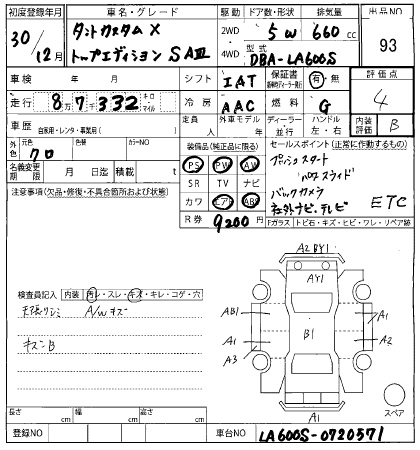 初度登録年月
車名・グレード
駆動
ドア数・形状
排気量
出品NO
30/12月
タントカスタムX
トップエディションSAⅢ
2WD
4WD
5W
660cc
型式
DBA-LA600S
93
車検 年 月
シフト
IAT
保証書
有・無
評価点
4
走行
87332
キロ
マイル
冷房
AAC
燃料
G
車歴
自家用・レンタ・事業用( )
定員
人
外車モデル
年
ディーラー
並行
ハンドル
左・右
内装
評価
B
外色
元色
クロ
色替
カラーNO
装備品(純正品に限る)
セールスポイント(正常に動作するもの)
名義変更期限
月 日迄
積載
t
PS PW AW
プッシュスタート
注意事項(欠品・修復・不具合箇所および状態)
SR TV ナビ
パワスライド
カワ エアB ABS
バックカメラ
社外ナビ・テレビ
ETC
R券
9200円
Fガラス トビ石・キズ・ヒビ・ワレ・リペア跡
A2 BY1
AY1
検査員記入
内装
汚レ・スレ・キズ・キレ・コゲ・穴
天張リシミ A/Wキズ
キズ・B
AB1
A1
A3
B1
A1
A2
A1
スペア
長さ cm
幅 cm
高さ cm
登録NO
車台NO
LA600S-0720571